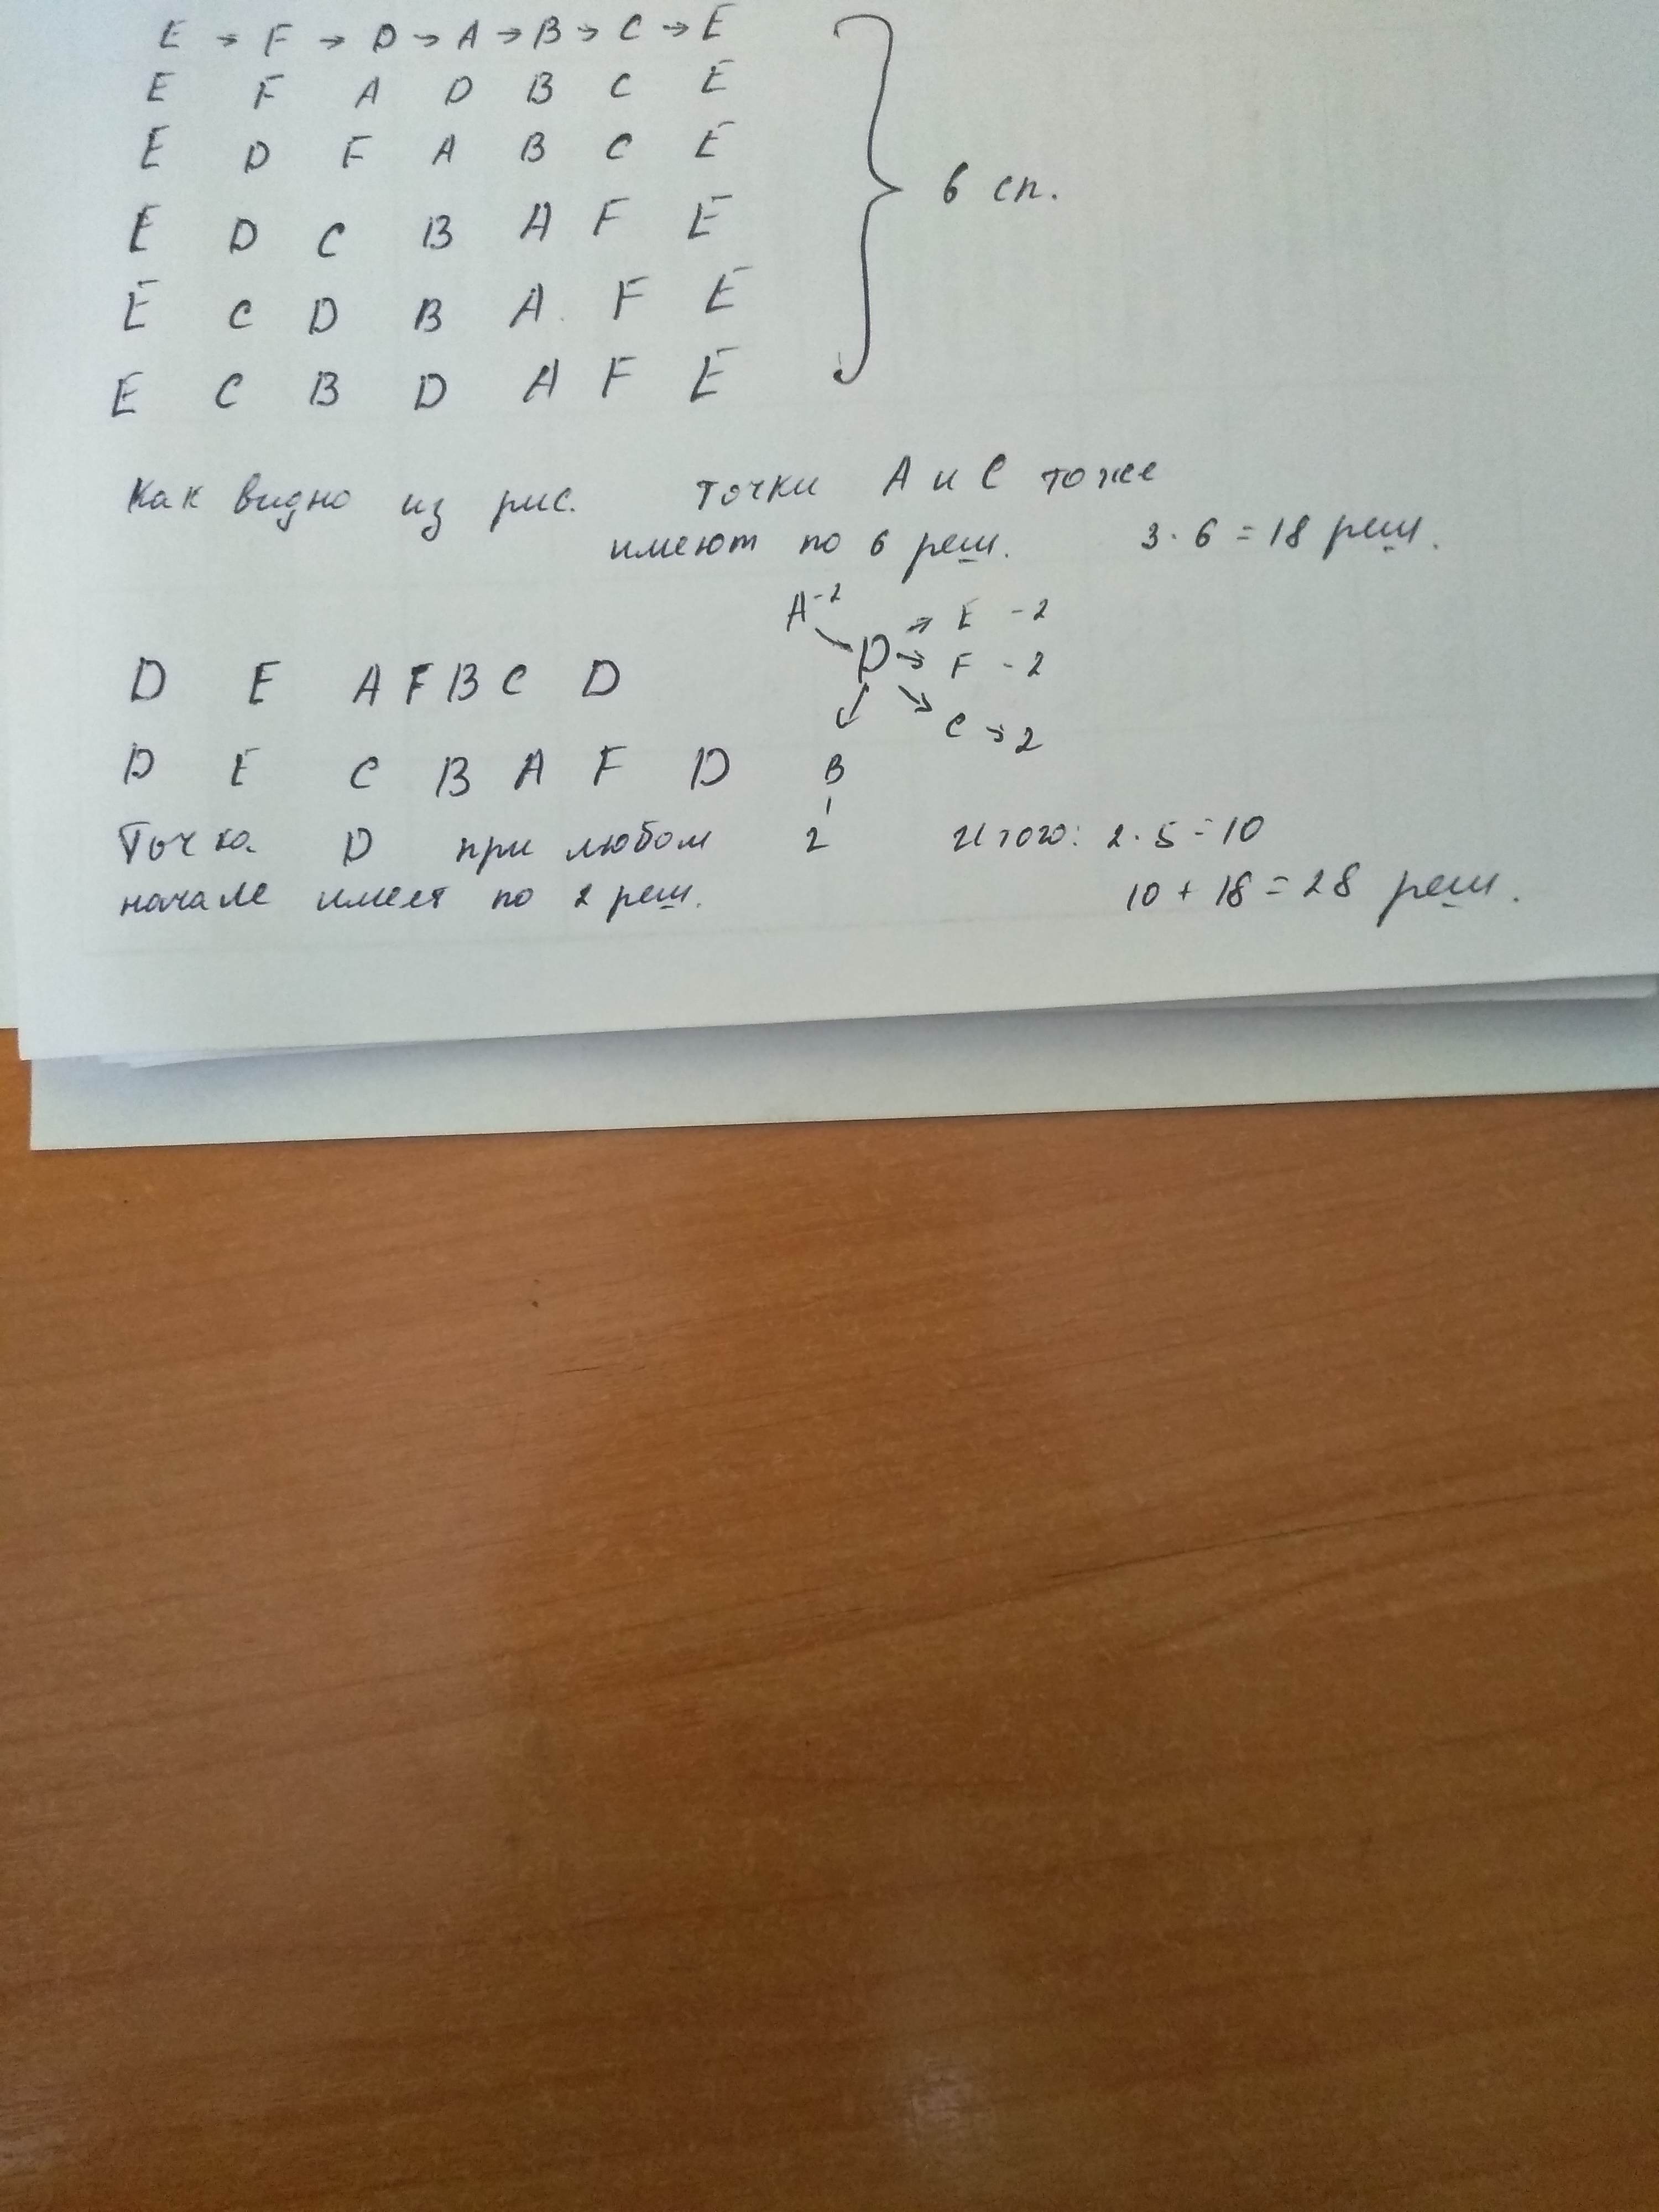 E → F → D → A → B → C → E
E F A D B C E
E D F A B C E
E D C B A F E
E C D B A F E
E C B D A F E
6 сп.
Как видно из рис. точки A и C тоже
имеют по 6 реш. 3·6=18 реш.
A-2
D → E -2
→ F -2
C → 2
B
2
D E A F B C D
D E C B A F D
Точка D при любом
начале имеет по 2 реш.
Итого: 2·5=10
10+18=28 реш.